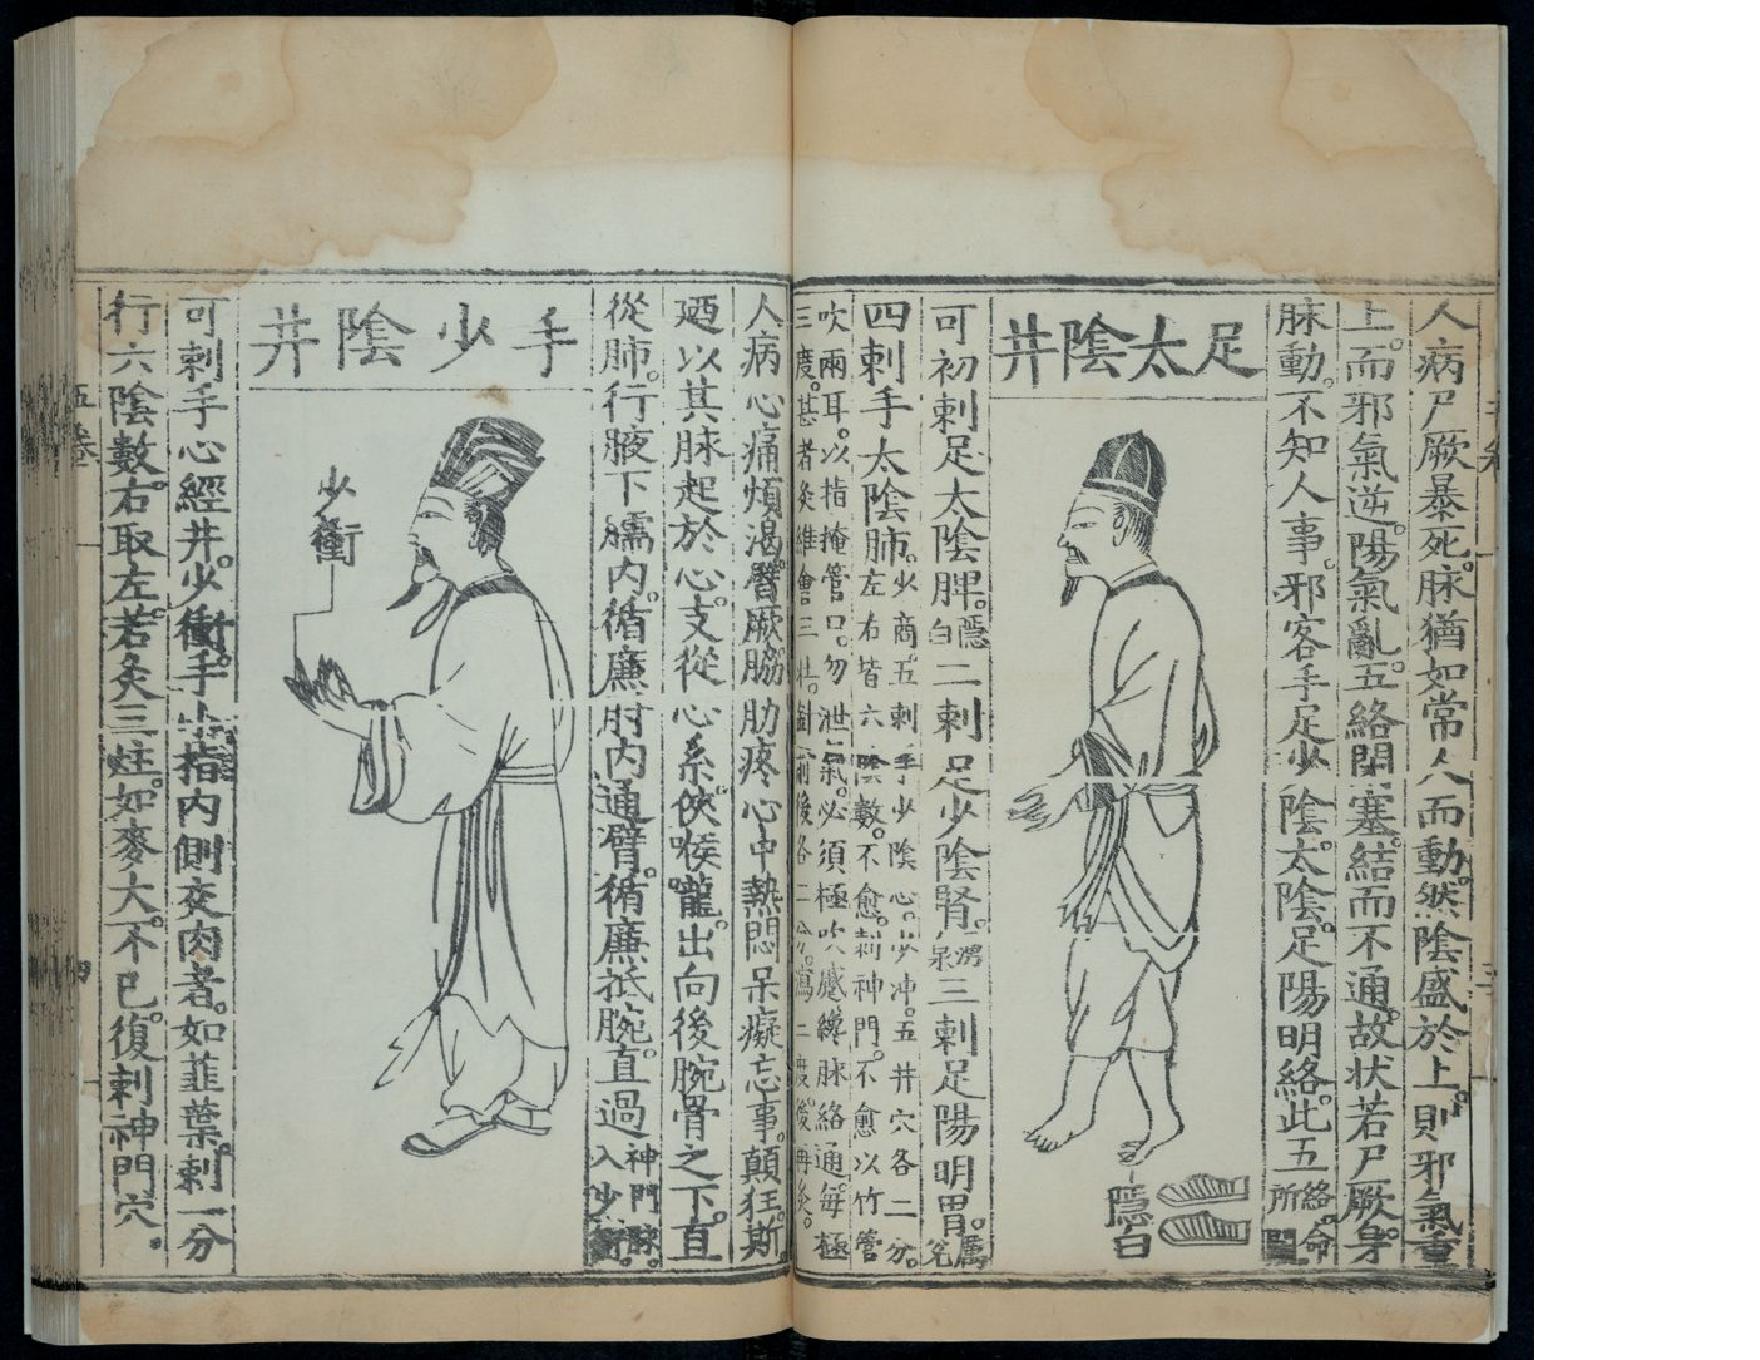 人病尸厥暴死。脉猶如常人而動。然陰盛於上。則邪氣重
上。而邪氣逆。陽氣亂。五絡閉塞。結而不通。故状若尸厥。身
脉動。不知人事。邪客手足少陰太陰。足陽明絡。此五絡。命所
足太陰井
隱白
可初刺足太陰脾。隱白二刺足少陰腎。湧泉三刺足陽明胃。厲兌
四刺手太陰肺。少商五刺手少陰心。少冲。五井穴各二分。左右皆六陰數。不愈。刺神門。不愈以竹管
吹兩耳。以指掩管口。勿泄氣。必須極吹蹙纔脉絡通。每極三度。甚者灸維會三壯。
人病心痛煩渴。臂厥。脇肋疼心中熱悶呆癡忘事。顛狂。斯
廼以其脉起於心。支從心系。俠喉嚨。出向後腕骨之下。直
從肺。行腋下臑內。循廉肘內通臂。循廉抵腕。直過神門脉。入少衝。
手少陰井
少衝
可刺手心經井。少衝。手小指內側交肉者。如韭葉。刺一分
行六陰數。右取左。若灸三炷。如麥大。不已。復刺神門穴。
五卷